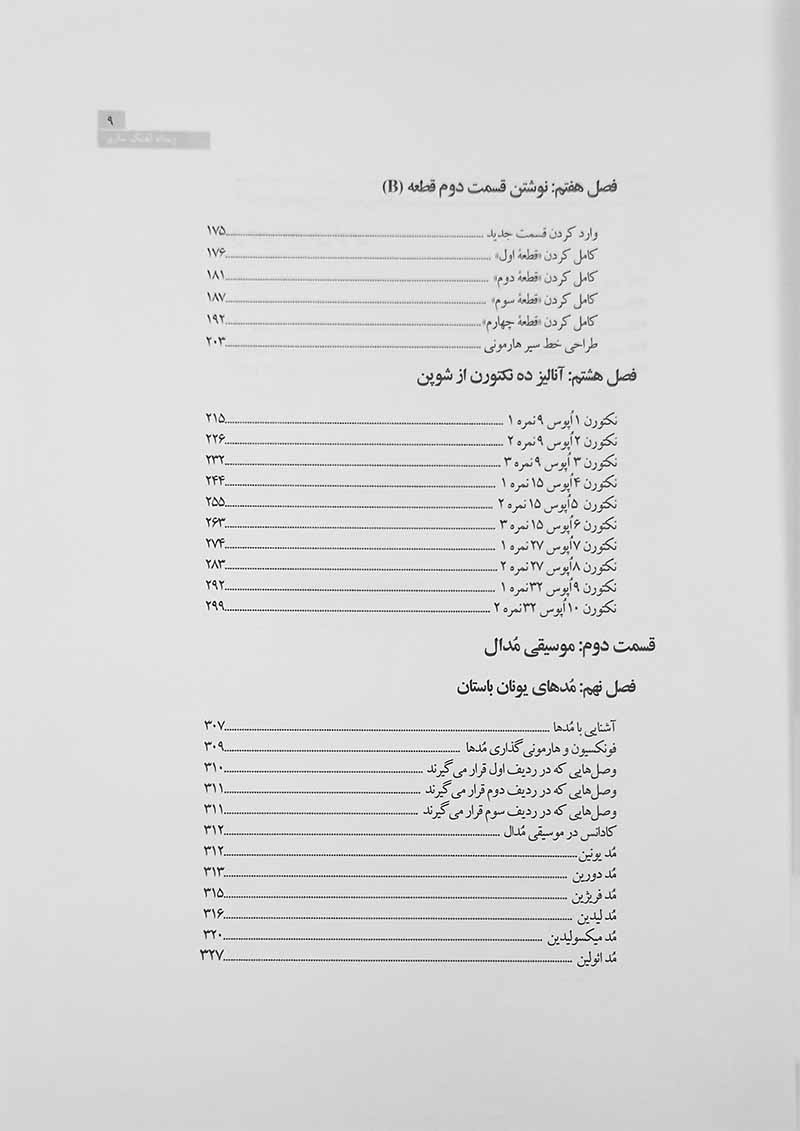 ۹
فصل هفتم: نوشتن قسمت دوم قطعه (B)
وارد کردن قسمت جدید ........ ۱۷۵
کامل کردن «قطعهٔ اول» ........ ۱۷۶
کامل کردن «قطعهٔ دوم» ........ ۱۸۱
کامل کردن «قطعهٔ سوم» ........ ۱۸۷
کامل کردن «قطعهٔ چهارم» ........ ۱۹۲
طراحی خط سیر هارمونی ........ ۲۰۳
فصل هشتم: آنالیز ده نکتورن از شوپن
نکتورن ۱ اُپوس ۹ نمره ۱ ........ ۲۱۵
نکتورن ۲ اُپوس ۹ نمره ۲ ........ ۲۲۶
نکتورن ۳ اُپوس ۹ نمره ۳ ........ ۲۳۲
نکتورن ۴ اُپوس ۱۵ نمره ۱ ........ ۲۴۴
نکتورن ۵ اُپوس ۱۵ نمره ۲ ........ ۲۵۵
نکتورن ۶ اُپوس ۱۵ نمره ۳ ........ ۲۶۳
نکتورن ۷ اُپوس ۲۷ نمره ۱ ........ ۲۷۴
نکتورن ۸ اُپوس ۲۷ نمره ۲ ........ ۲۸۳
نکتورن ۹ اُپوس ۳۲ نمره ۱ ........ ۲۹۲
نکتورن ۱۰ اُپوس ۳۲ نمره ۲ ........ ۲۹۹
قسمت دوم: موسیقی مُدال
فصل نهم: مُدهای یونان باستان
آشنایی با مُدها ........ ۳۰۷
فونکسیون و هارمونی‌گذاری مُدها ........ ۳۰۹
وصل‌هایی که در ردیف اول قرار می‌گیرند ........ ۳۱۰
وصل‌هایی که در ردیف دوم قرار می‌گیرند ........ ۳۱۱
وصل‌هایی که در ردیف سوم قرار می‌گیرند ........ ۳۱۱
کادانس در موسیقی مُدال ........ ۳۱۲
مُد یونین ........ ۳۱۲
مُد دورین ........ ۳۱۳
مُد فریژین ........ ۳۱۵
مُد لیدین ........ ۳۱۶
مُد میکسولیدین ........ ۳۲۰
مُد ائولین ........ ۳۲۷